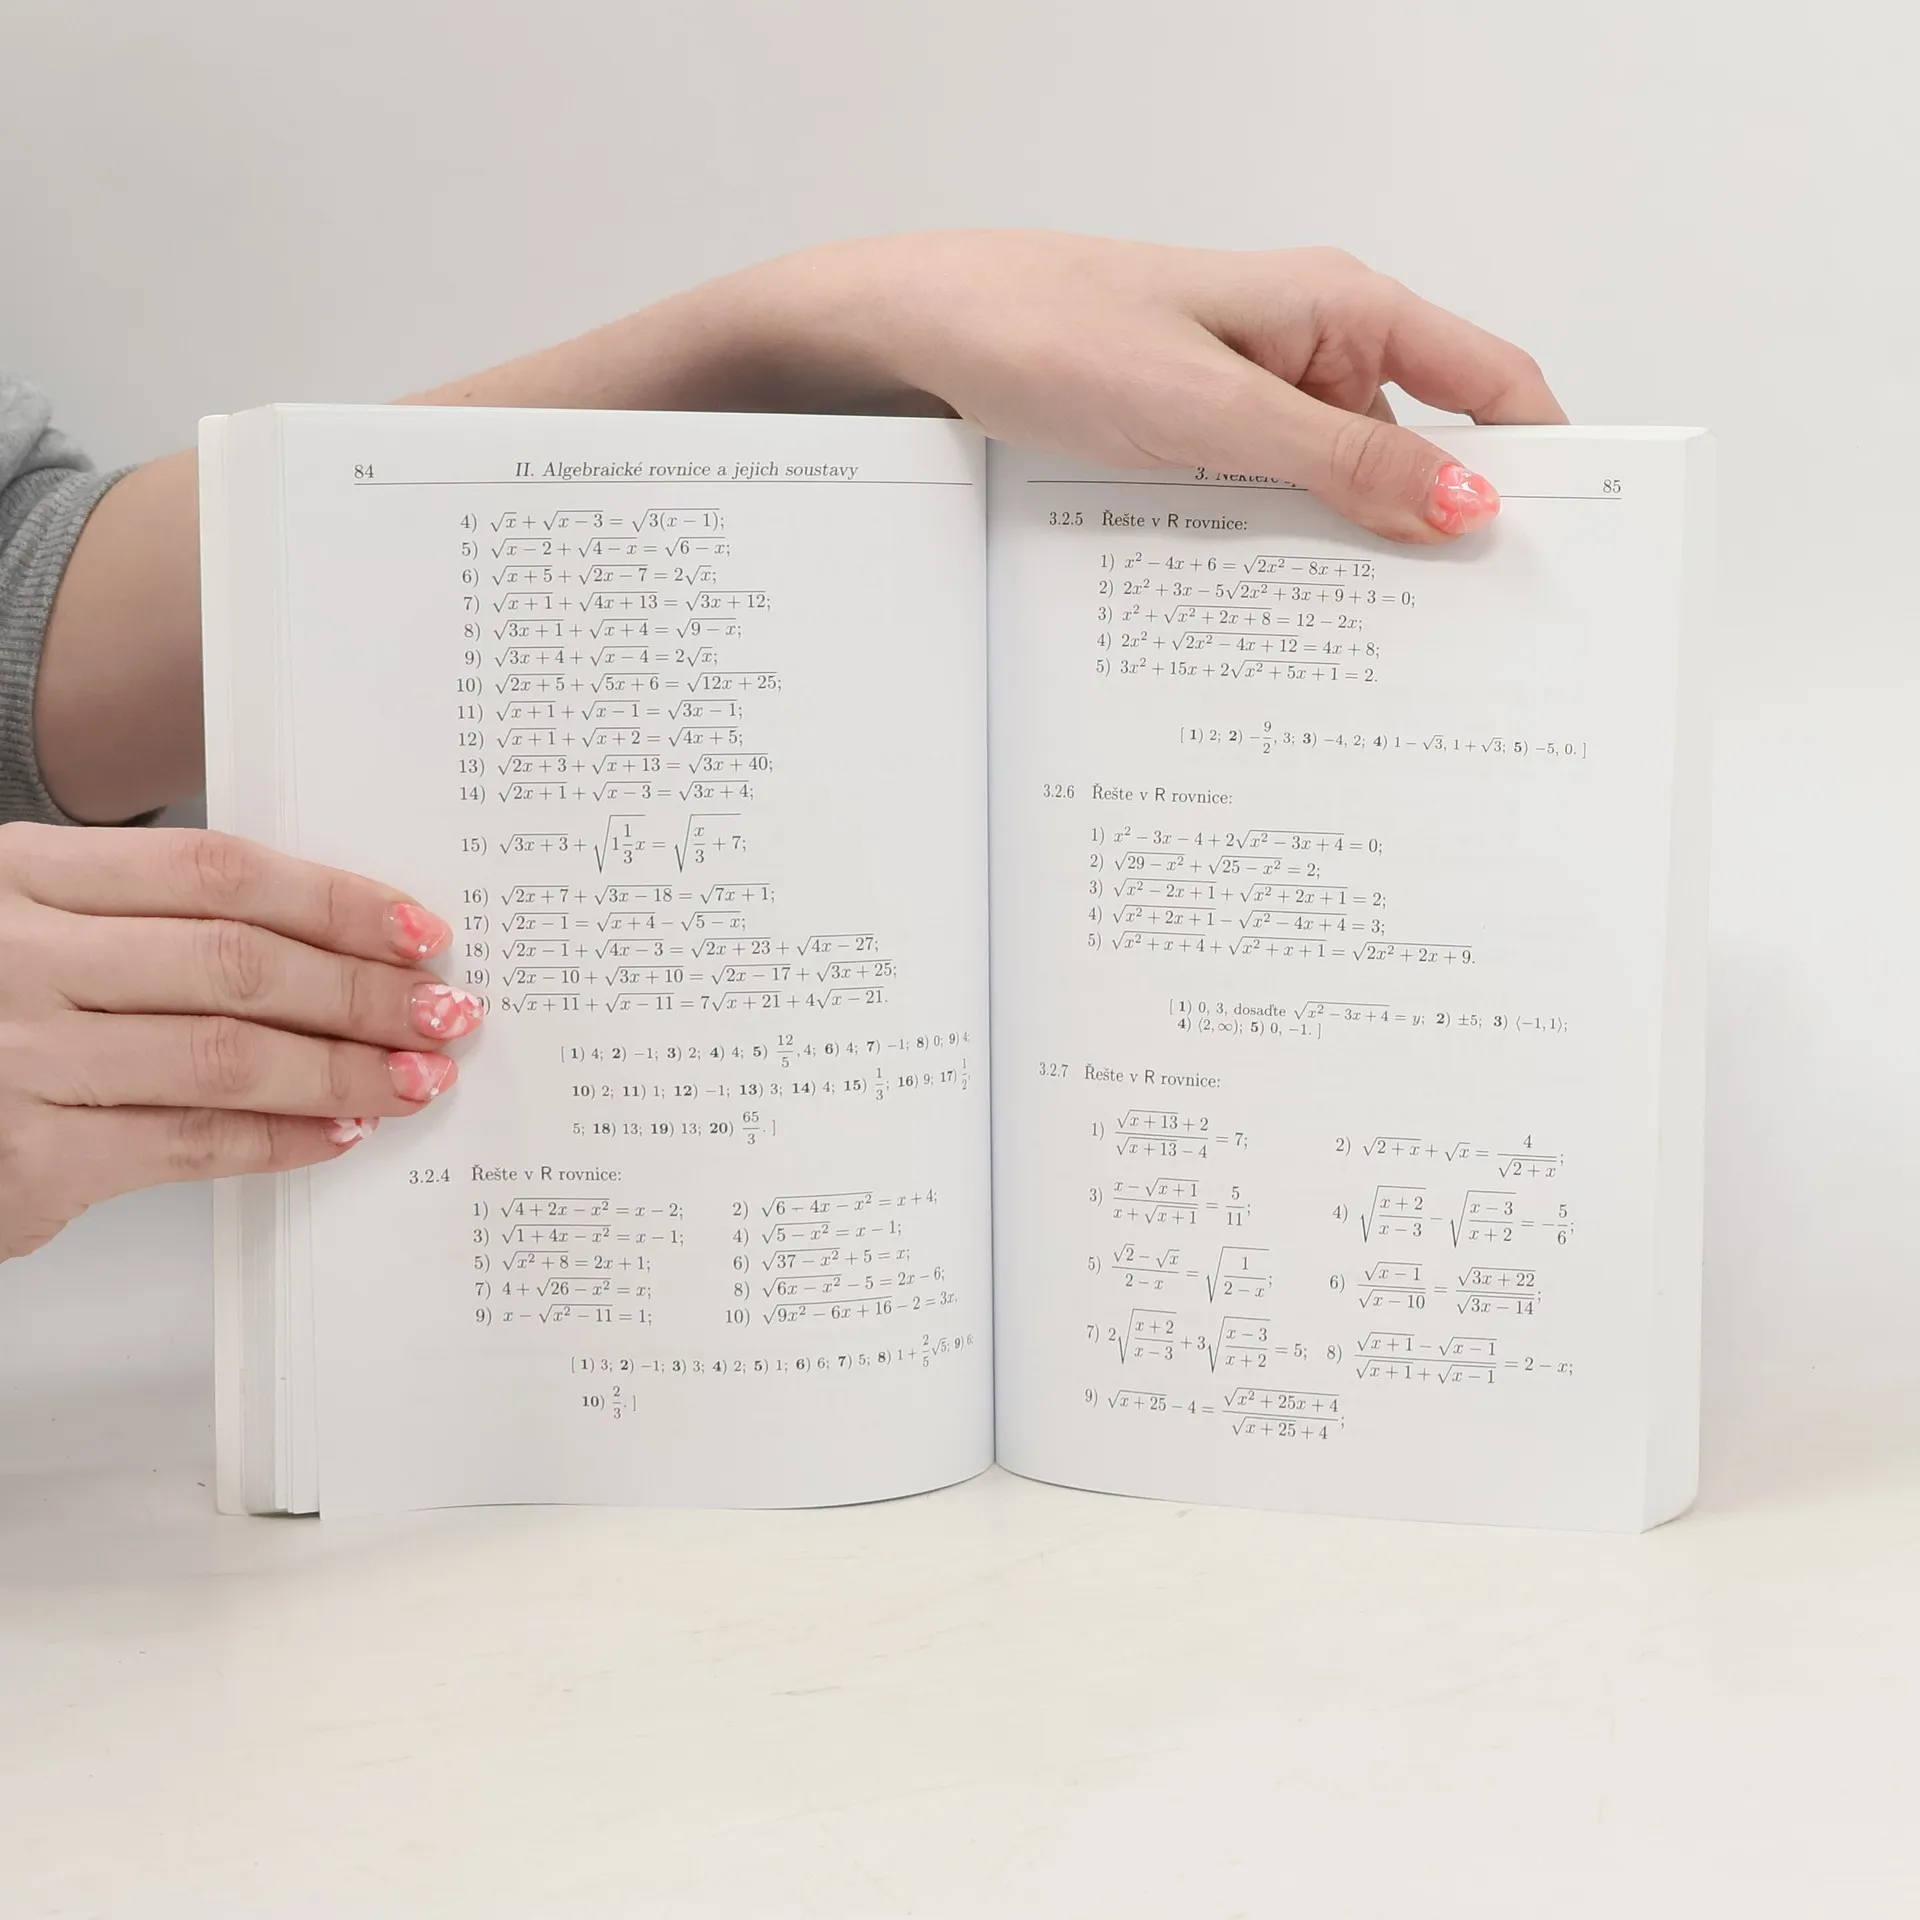 84 II. Algebraické rovnice a jejich soustavy
4) √x + √(x − 3) = √(3(x − 1));
5) √(x − 2) + √(4 − x) = √(6 − x);
6) √(x + 5) + √(2x − 7) = 2√x;
7) √(x + 1) + √(4x + 13) = √(3x + 12);
8) √(3x + 1) + √(x + 4) = √(9 − x);
9) √(3x + 4) + √(x − 4) = 2√x;
10) √(2x + 5) + √(5x + 6) = √(12x + 25);
11) √(x + 1) + √(x − 1) = √(3x − 1);
12) √(x + 1) + √(x + 2) = √(4x + 5);
13) √(2x + 3) + √(x + 13) = √(3x + 40);
14) √(2x + 1) + √(x − 3) = √(3x + 4);
15) √(3x + 3) + √(1 1/3 x) = √(x/3 + 7);
16) √(2x + 7) + √(3x − 18) = √(7x + 1);
17) √(2x − 1) = √(x + 4) − √(5 − x);
18) √(2x − 1) + √(4x − 3) = √(2x + 23) + √(4x − 27);
19) √(2x − 10) + √(3x + 10) = √(2x − 17) + √(3x + 25);
) 8√(x + 11) + √(x − 11) = 7√(x + 21) + 4√(x − 21).
[ 1) 4; 2) −1; 3) 2; 4) 4; 5) 12/5, 4; 6) 4; 7) −1; 8) 0; 9) 4;
10) 2; 11) 1; 12) −1; 13) 3; 14) 4; 15) 1/3; 16) 9; 17) 1/2,
5; 18) 13; 19) 13; 20) 65/3. ]
3.2.4 Řešte v R rovnice:
1) √(4 + 2x − x²) = x − 2; 2) √(6 − 4x − x²) = x + 4;
3) √(1 + 4x − x²) = x − 1; 4) √(5 − x²) = x − 1;
5) √(x² + 8) = 2x + 1; 6) √(37 − x²) + 5 = x;
7) 4 + √(26 − x²) = x; 8) √(6x − x²) − 5 = 2x − 6;
9) x − √(x² − 11) = 1; 10) √(9x² − 6x + 16) − 2 = 3x.
[ 1) 3; 2) −1; 3) 3; 4) 2; 5) 1; 6) 6; 7) 5; 8) 1 + 2/5 √5; 9) 6;
10) 2/3. ]
3. 85
3.2.5 Řešte v R rovnice:
1) x² − 4x + 6 = √(2x² − 8x + 12);
2) 2x² + 3x − 5√(2x² + 3x + 9) + 3 = 0;
3) x² + √(x² + 2x + 8) = 12 − 2x;
4) 2x² + √(2x² − 4x + 12) = 4x + 8;
5) 3x² + 15x + 2√(x² + 5x + 1) = 2.
[ 1) 2; 2) −9/2, 3; 3) −4, 2; 4) 1 − √3, 1 + √3; 5) −5, 0. ]
3.2.6 Řešte v R rovnice:
1) x² − 3x − 4 + 2√(x² − 3x + 4) = 0;
2) √(29 − x²) + √(25 − x²) = 2;
3) √(x² − 2x + 1) + √(x² + 2x + 1) = 2;
4) √(x² + 2x + 1) − √(x² − 4x + 4) = 3;
5) √(x² + x + 4) + √(x² + x + 1) = √(2x² + 2x + 9).
[ 1) 0, 3, dosaďte √(x² − 3x + 4) = y; 2) ±5; 3) ⟨−1, 1⟩;
4) ⟨2, ∞); 5) 0, −1. ]
3.2.7 Řešte v R rovnice:
1) (√(x + 13) + 2)/(√(x + 13) − 4) = 7; 2) √(2 + x) + √x = 4/√(2 + x);
3) (x − √(x + 1))/(x + √(x + 1)) = 5/11; 4) √((x + 2)/(x − 3)) − √((x − 3)/(x + 2)) = −5/6;
5) (√2 − √x)/(2 − x) = √(1/(2 − x)); 6) √(x − 1)/√(x − 10) = √(3x + 22)/√(3x − 14);
7) 2√((x + 2)/(x − 3)) + 3√((x − 3)/(x + 2)) = 5; 8) (√(x + 1) − √(x − 1))/(√(x + 1) + √(x − 1)) = 2 − x;
9) √(x + 25) − 4 = √(x² + 25x + 4)/(√(x + 25) + 4);